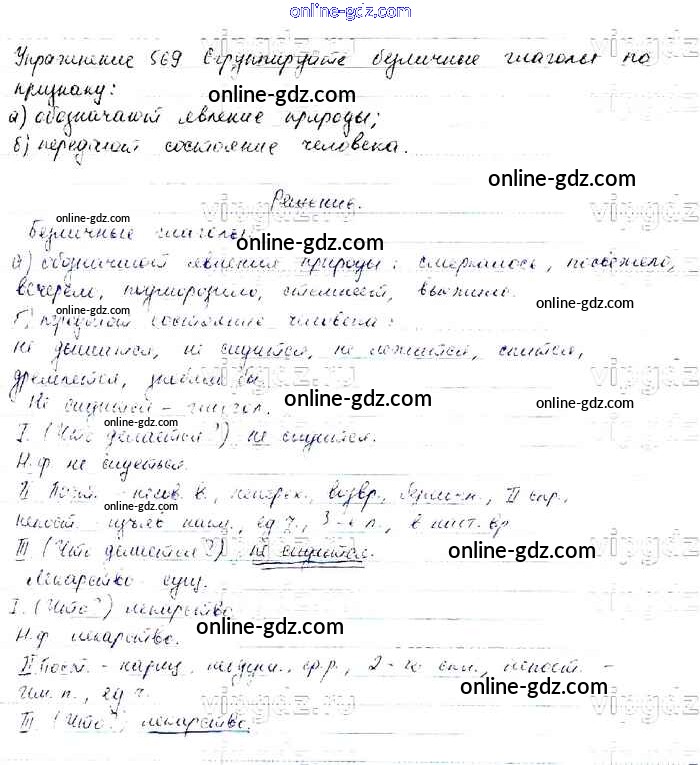 online-gdz.com
Упражнение 569 Сгруппируйте безличные глаголы по
признаку:
online-gdz.com
а) обозначают явление природы;
б) передают состояние человека.
online-gdz.com
Решение.
online-gdz.com
Безличные глаголы:
online-gdz.com
а) обозначают явления природы: смеркалось, посвежело,
online-gdz.com
вечереет, подморозило, стемнеет,
online-gdz.com
б) передают состояние человека:
не дышится, не сидится, не лежится, спится,
online-gdz.com
дремлется,
online-gdz.com
Не сидится – глагол.
online-gdz.com
I. (Что делается?) не сидится.
Н.ф. не сидеться.
II Пост. - несов. в., неперех., возвр., II спр.,
online-gdz.com
непост. - изъяв. накл., ед. ч., 3-е л., в наст. вр.
III (Что делается?) не сидится.
online-gdz.com
Лекарство - сущ.
I. (Что?) лекарство
online-gdz.com
Н.ф. лекарство.
II Пост. - нариц., неодуш., ср.р., 2-е скл., непост. -
им. п., ед. ч.
online-gdz.com
III (Что?) лекарство.